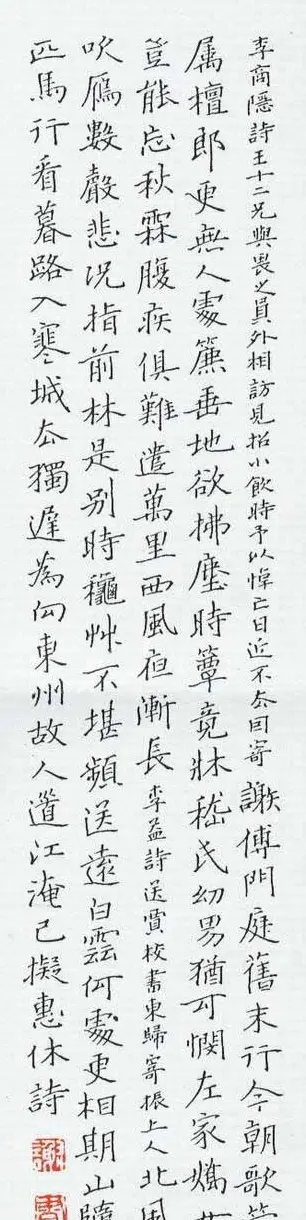 李商隱詩王十二兄與畏之員外相訪見招小飲時予以悼亡日近不去因寄 謝傅門庭舊末行今朝歌管
属檀郎更無人處簾垂地欲拂塵時簟竟牀嵇氏幼男猶可憫左家嬌女
豈能忘秋霖腹疾俱難遣萬里西風夜漸長 李益詩送賈校書東歸寄振上人 北風
吹鴈數聲悲况指前林是别時龝艸不堪頻送遠白雲何處更相期山隨
匹馬行看暮路入寒城去獨遲為向東州故人道江淹已擬惠休詩